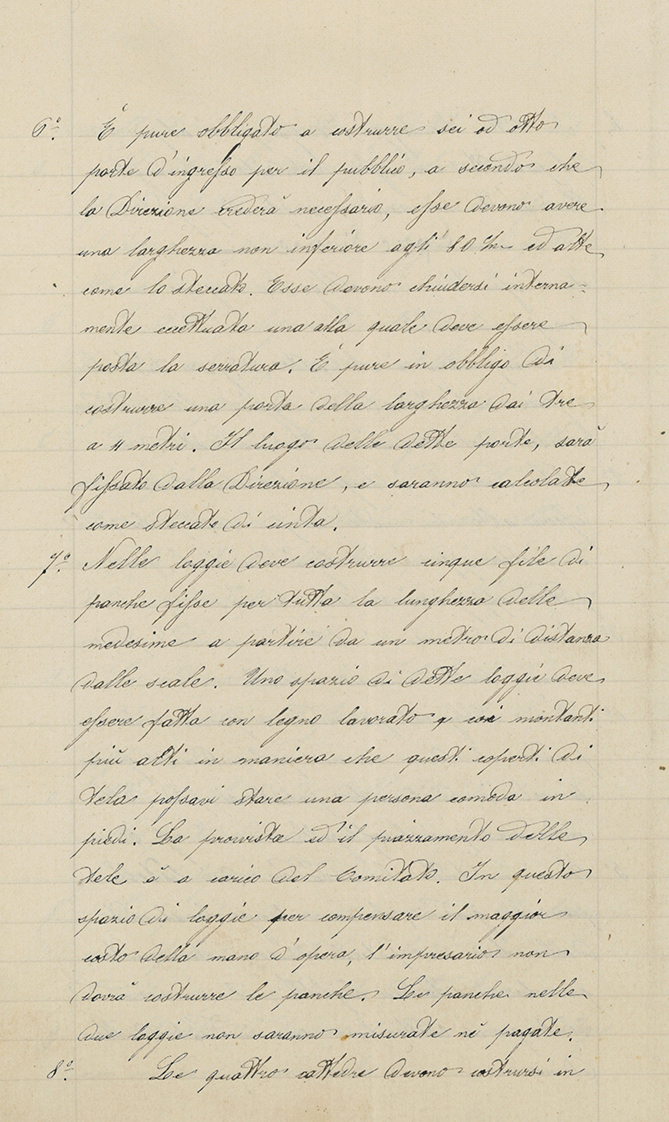 6º. È pure obbligato a costrurre sei od otto
porte d'ingresso per il pubblico, a secondo che
la Direzione crederà necessario, esse devono avere
una larghezza non inferiore agli 80 %m ed alte
come lo steccato. Esse devono chiudersi interna=
mente eccettuato una alla quale deve essere
posta la serratura. È pure in obbligo di
costrurre una porta della larghezza dai tre
a 4 metri. Il luogo delle dette porte, sarà
fissato dalla Direzione, e saranno calcolate
come steccato di cinta.
7º. Nelle loggie deve costrurre cinque file di
panche fisse per tutta la lunghezza delle
medesime a partire da un metro di distanza
dalle scale. Uno spazio di dette loggie deve
essere fatta con legno lavorato e coi montanti
più alti in maniera che questi coperti di
tela possavi stare una persona comoda in
piedi. La provista ed il piazzamento delle
tele è a carico del Comitato. In questo
spazio di loggie per compensare il maggior
costo della mano d'opera, l'impresario non
dovrà costrurre le panche. Le panche nelle
due loggie non saranno misurate nè pagate.
8º. Le quattro cattedre devono costrursi in